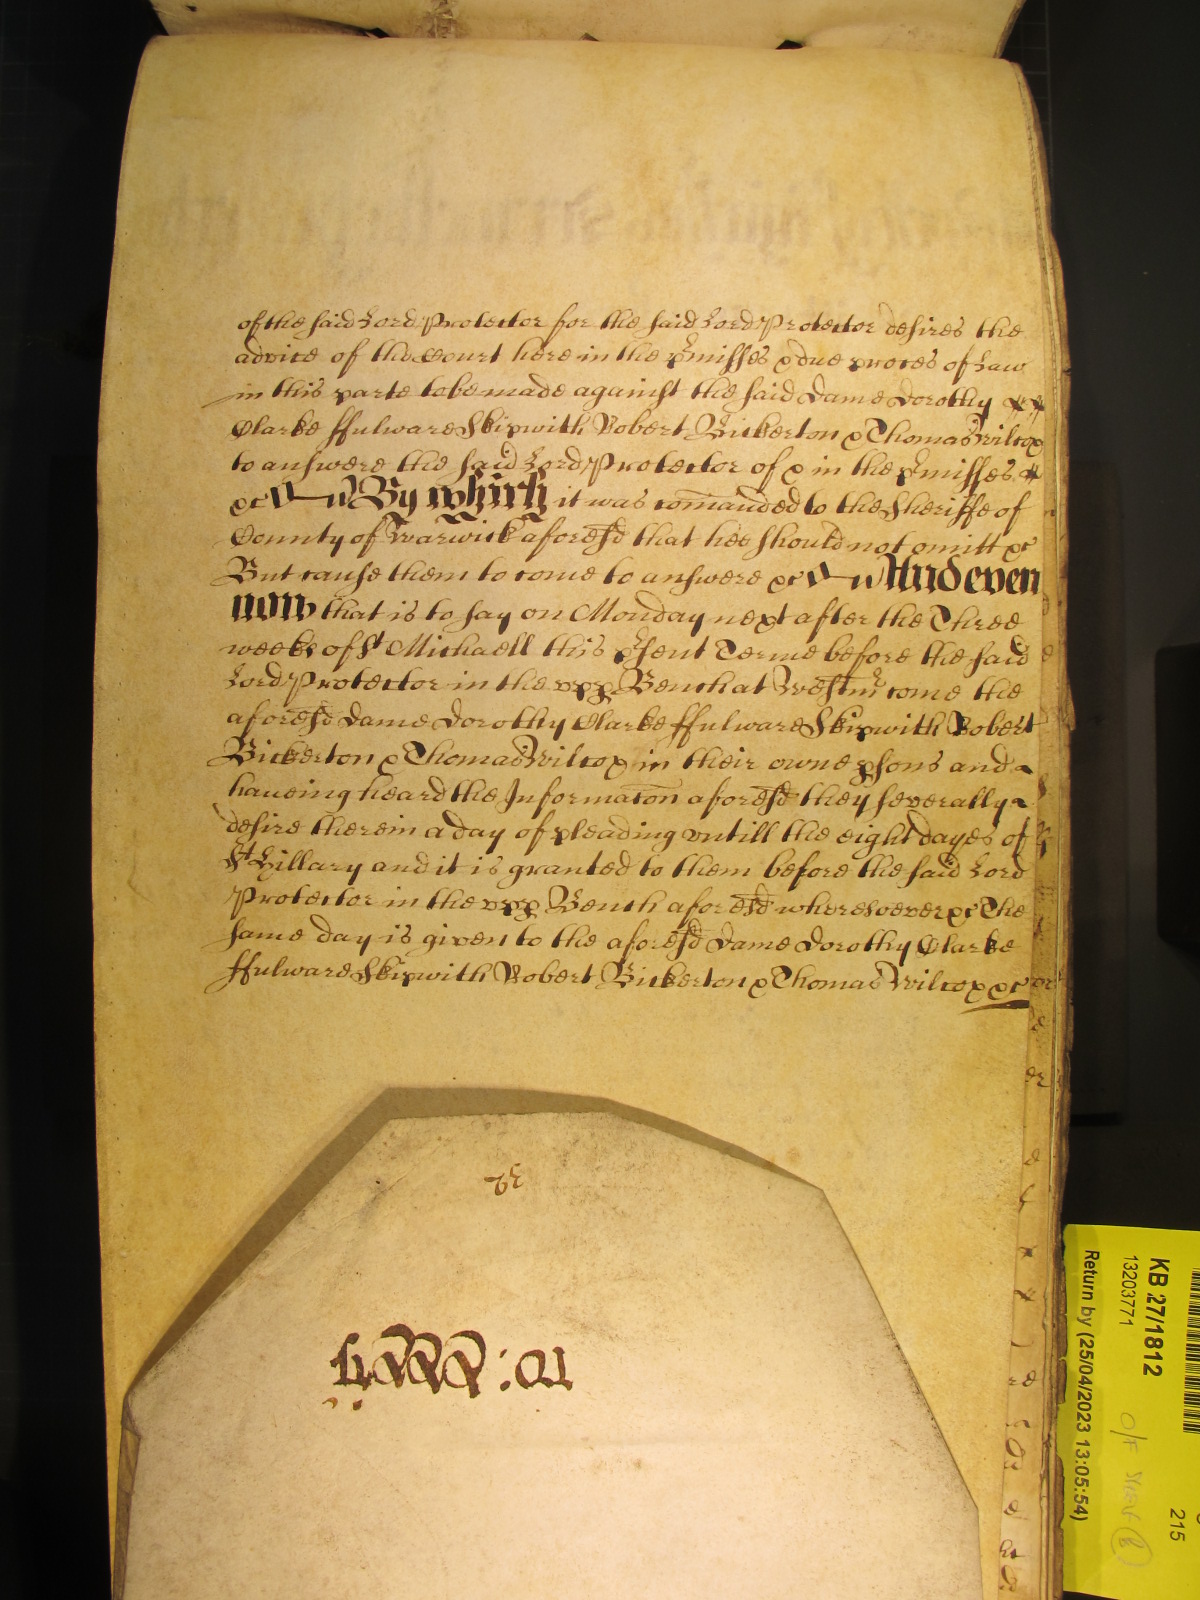 of the said Lord Protector for the said Lord Protector desires the
advice of the Court here in the pmisses & due proces of Law
in this parte to be made against the said Dame Dorothy
Clarke ffulware Skipwith Robert Bickerton & Thomas Wilcox
to answere the said Lord Protector of & in the pmisses
&c By which it was comanded to the Sheriffe of
County of Warwick aforesd that hee should not omitt &c
But cause them to come to answere &c And even
now that is to say on Monday next after the Three
weeks of St Michaell this psent Terme before the said
Lord Protector in the upp Bench at Westmr come the
aforesd Dame Dorothy Clarke ffulware Skipwith Robert
Bickerton & Thomas Wilcox in their owne psons and
haveing heard the Informacon aforesd they severally
desire therein a day of pleading untill the eight dayes of
St Hillary and it is granted to them before the said Lord
Protector in the upp Bench aforesd wheresoever &c The
same day is given to the aforesd Dame Dorothy Clarke
ffulware Skipwith Robert Bickerton & Thomas Wilcox &c
KB 27/1812
13203771
Return by (25/04/2023 13:05:54)
215